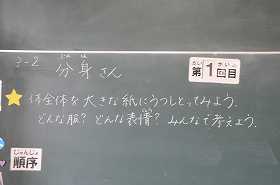 3-2
分身さん
ぶん しん
第1回目
だい かい め
体全体を大きな紙にうつしとってみよう。
どんな服? どんな表情? みんなで考えよう。
じゅんじょ
順序